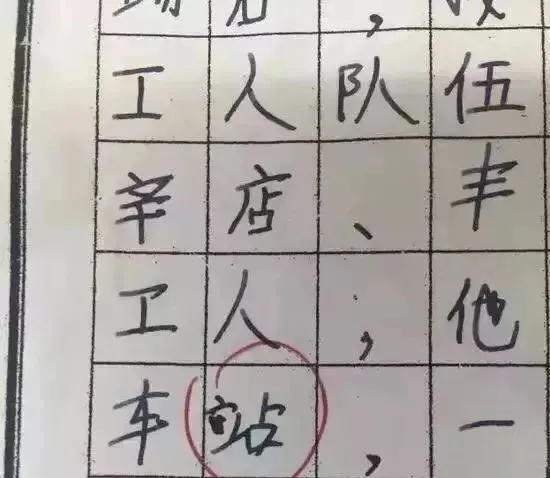 工人队伍
辛店、丰
工人，他
车站，一